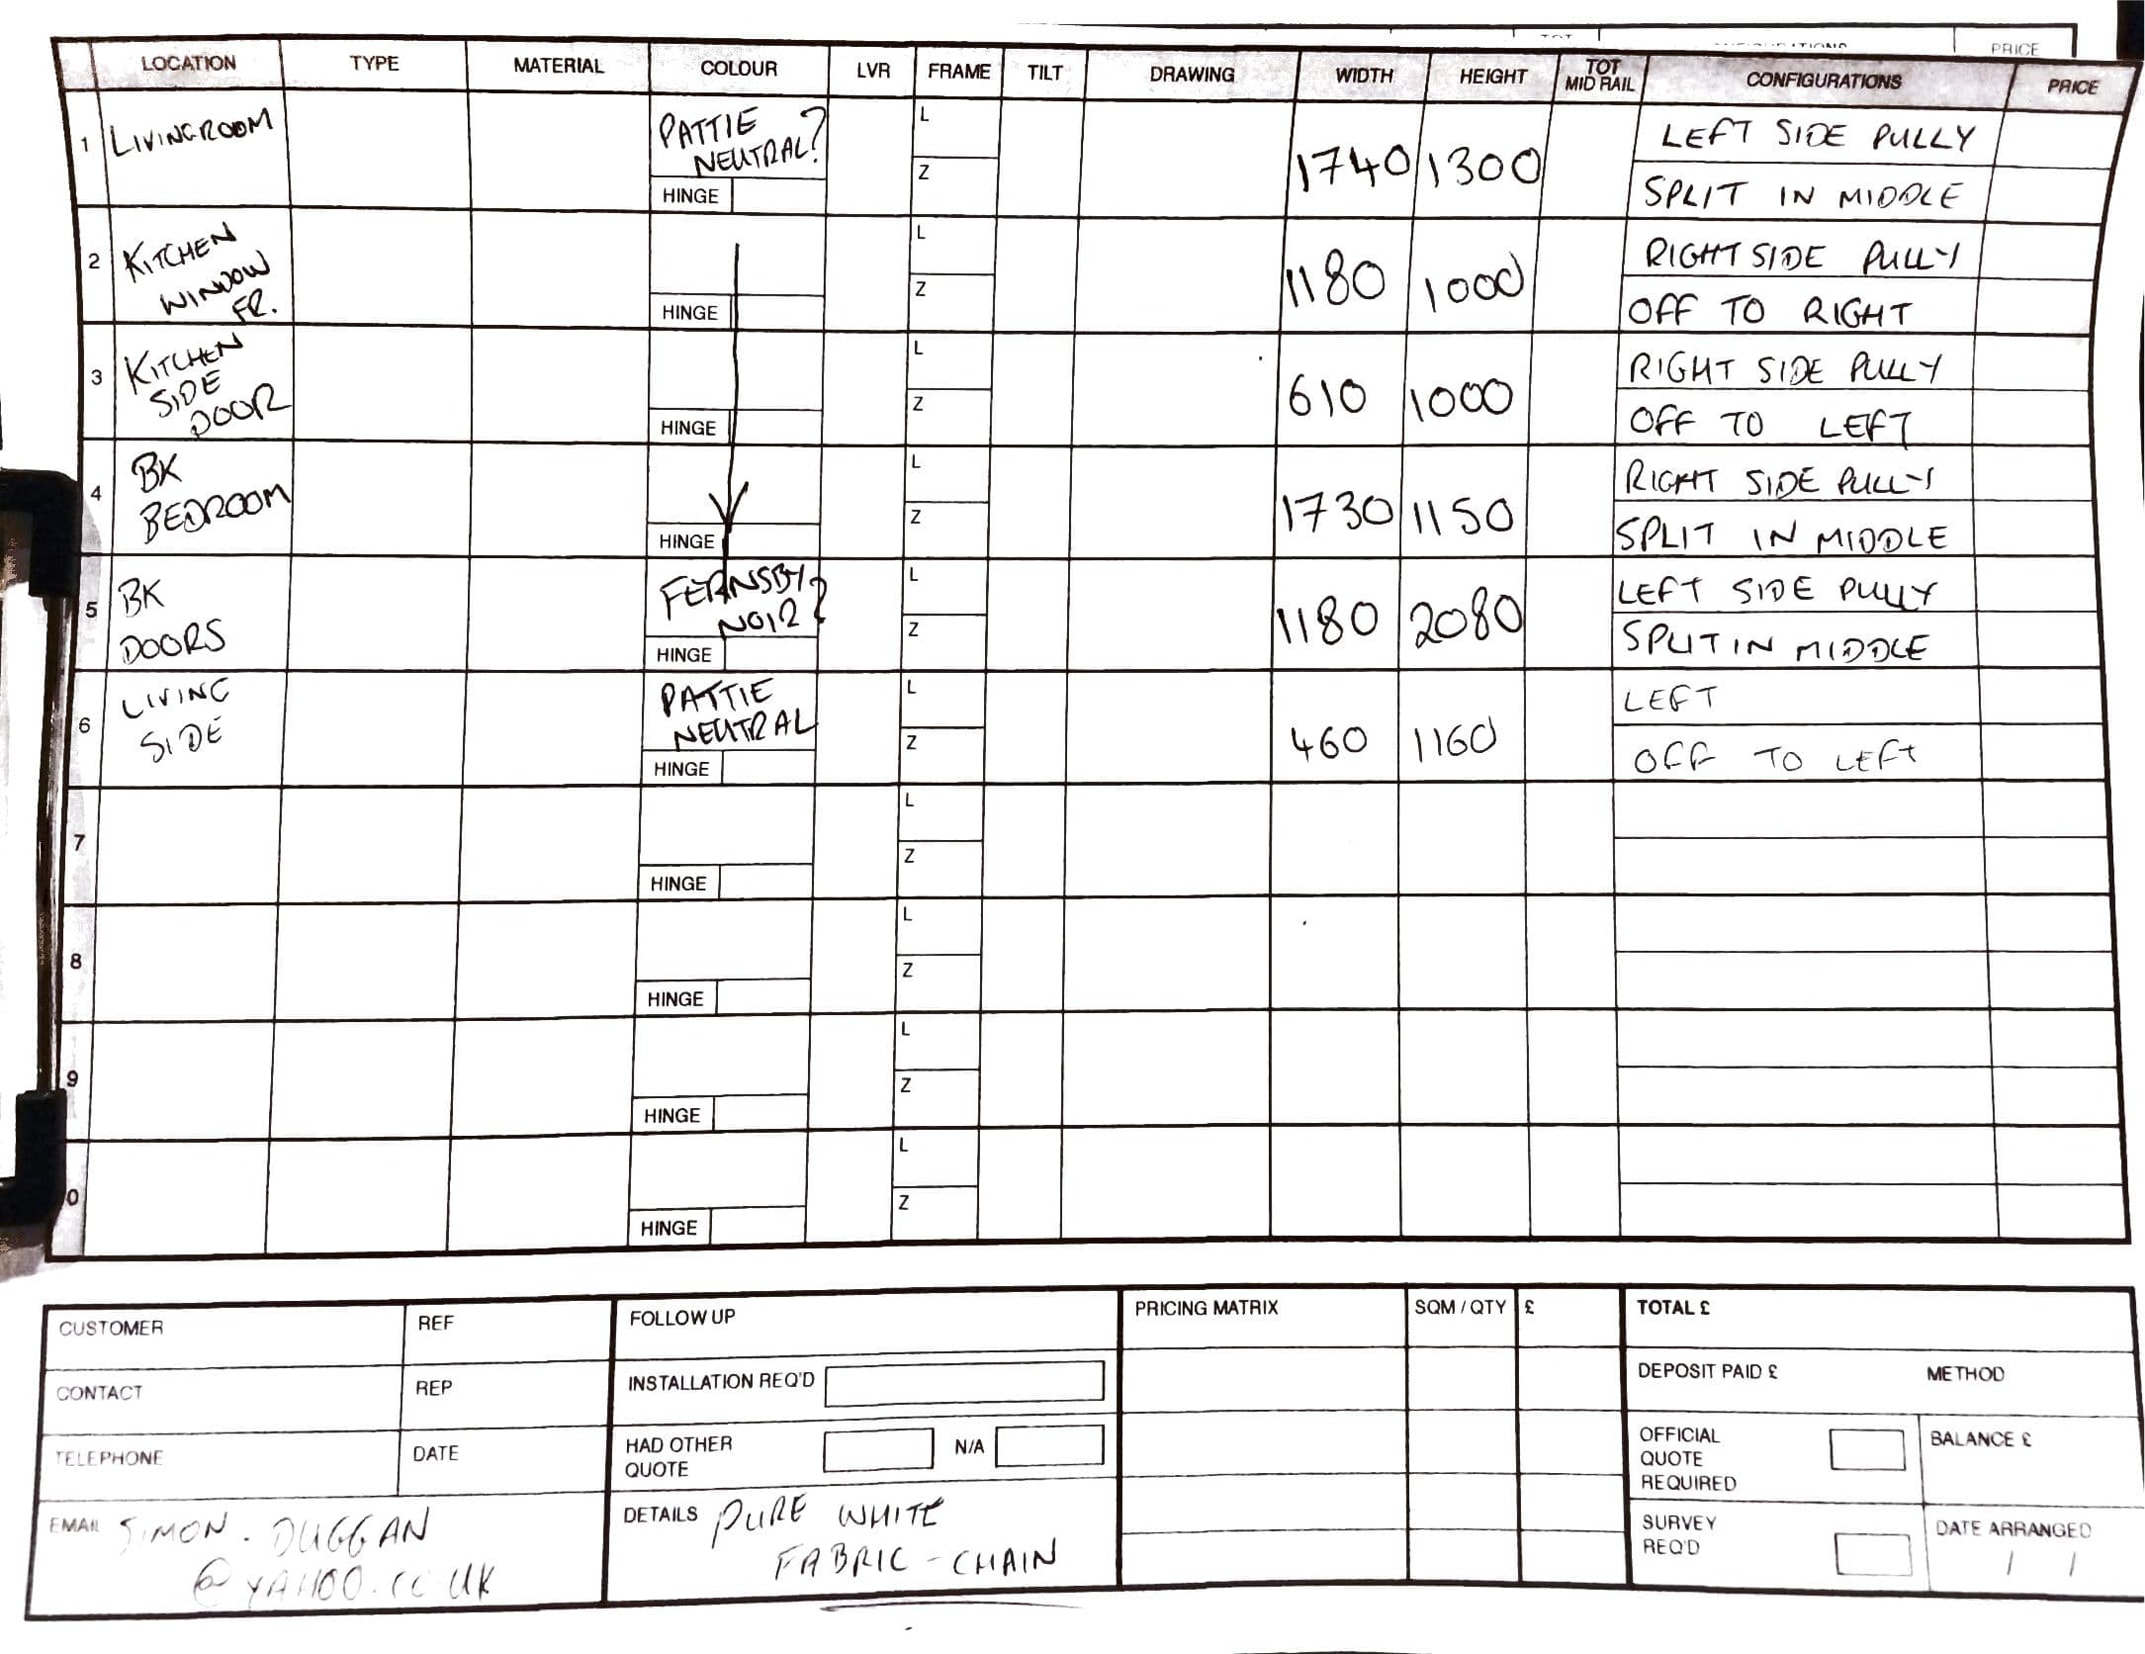 PRICE
LOCATION TYPE MATERIAL COLOUR LVR FRAME TILT DRAWING WIDTH HEIGHT TOT MID RAIL CONFIGURATIONS PRICE
1 LIVINGROOM PATTIE NEUTRAL? HINGE L Z 1740 1300 LEFT SIDE PULLY
SPLIT IN MIDDLE
2 KITCHEN WINDOW FR. HINGE L Z 1180 1000 RIGHT SIDE PULLY
OFF TO RIGHT
3 KITCHEN SIDE DOOR HINGE L Z 610 1000 RIGHT SIDE PULLY
OFF TO LEFT
4 BK BEDROOM HINGE L Z 1730 1150 RIGHT SIDE PULLY
SPLIT IN MIDDLE
5 BK DOORS FERNSBY NOIR? HINGE L Z 1180 2080 LEFT SIDE PULLY
SPLIT IN MIDDLE
6 LIVING SIDE PATTIE NEUTRAL HINGE L Z 460 1160 LEFT
OFF TO LEFT
7 HINGE L Z
8 HINGE L Z
9 HINGE L Z
0 HINGE L Z
CUSTOMER REF
CONTACT REP
TELEPHONE DATE
EMAIL SIMON.DUGGAN
@YAHOO.CO.UK
FOLLOW UP
INSTALLATION REQ'D
HAD OTHER QUOTE N/A
DETAILS PURE WHITE
FABRIC - CHAIN
PRICING MATRIX SQM / QTY £
TOTAL £
DEPOSIT PAID £ METHOD
OFFICIAL QUOTE REQUIRED BALANCE £
SURVEY REQ'D DATE ARRANGED
/ /